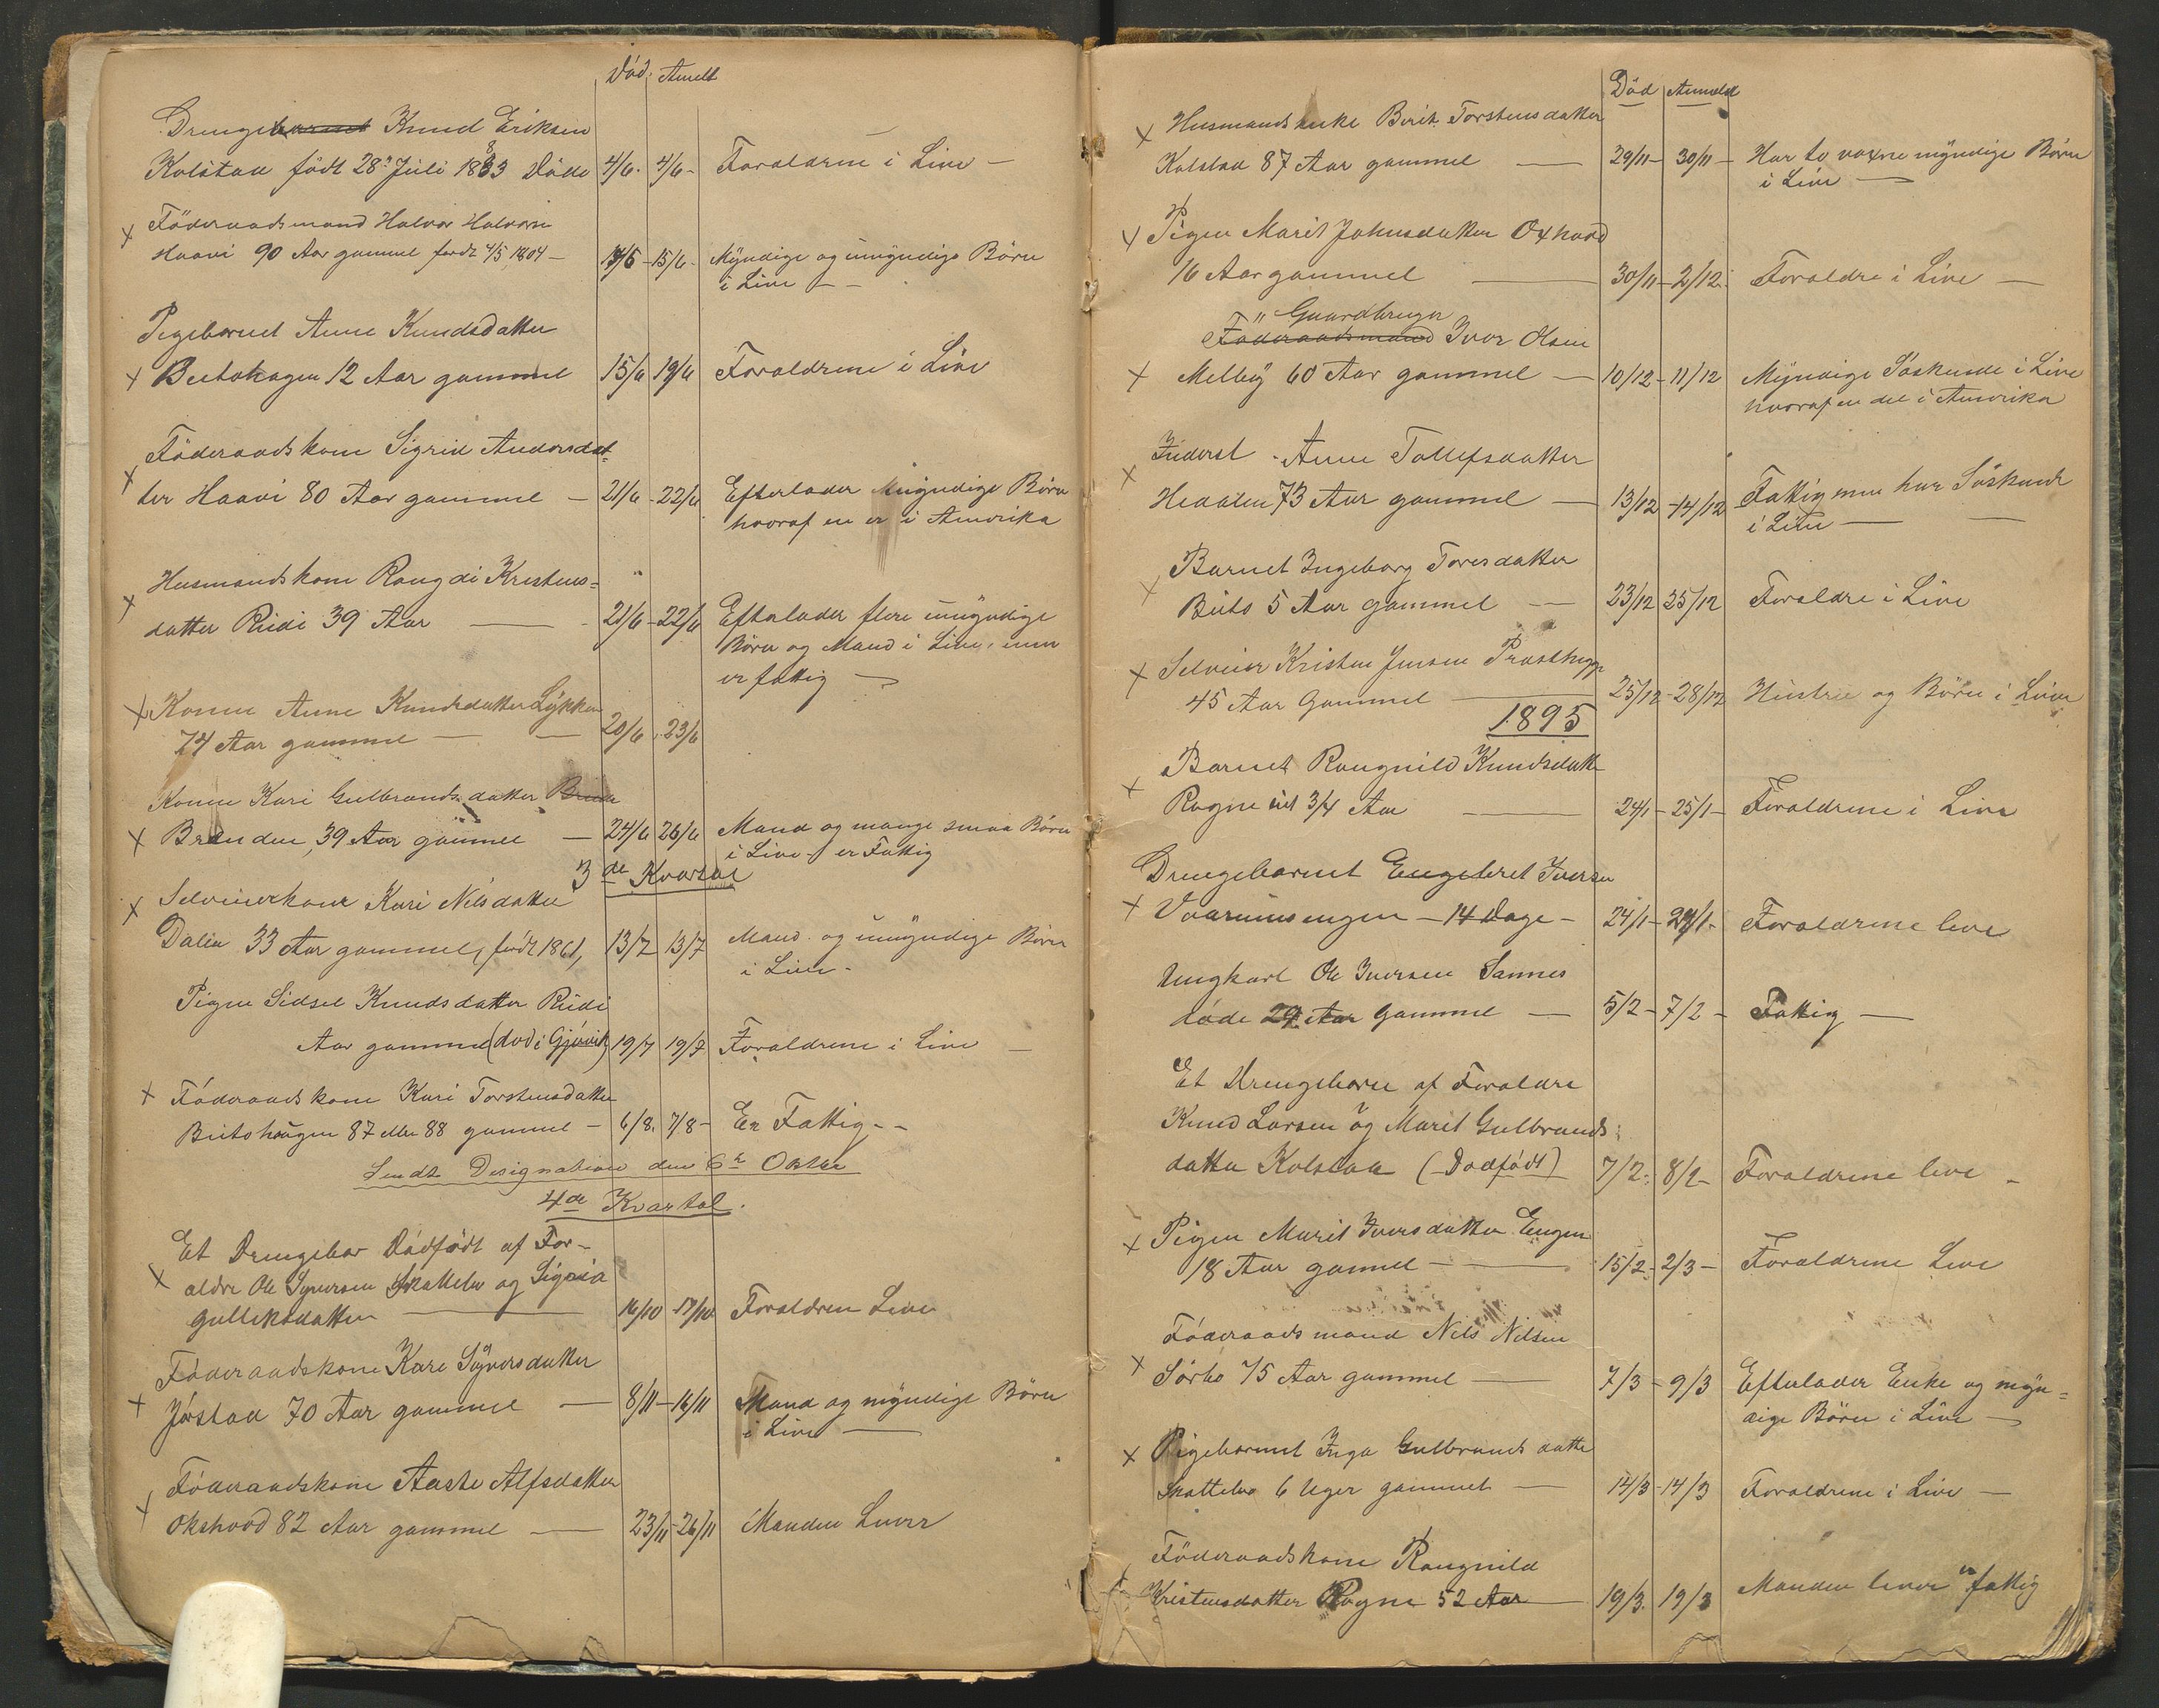 Död. Anmelt
Drengebarnet Knud Eriksen
Kolstad födt 28de Juli 1883 Döde 4/6. 4/6 - Foraldrene i Live -
x Föderaadsmand Halvor Halvorsen
Haavi 90 Aar gammel født 4/5 1804 - 14/6 - 15/6 - Myndige og umyndige Börn
i Live -
Pigebarnet Anne Knudsdatter
x Beitohagen 12 Aar gammel 15/6 19/6 Foraldrene i Live
Föderaadskone Sigrid Andersdat-
x ter Haavi 80 Aar gammel - 21/6 - 22/6 Efterlader Myndige Börn
hvoraf en er i Amerika
Husmandskone Rangdi Kristens=
x datter Rudi 39 Aar - 21/6 - 22/6 Efterlader flere umyndige
Börn og Mand i Live, men
er fattig -
x Konen Anne Knudsdatter Lykken
74 Aar gammel - 20/6 . 23/6
Konen Kari Gulbrandsdatter
x Brænden, 39 Aar gammel - 24/6 26/6 Mand og mange smaa Börn
i Live - er Fattig
3de Kvartal
x Selveierkone Kari Nilsdatter
Dalin 33 Aar gammel, født 1861, 13/7 13/7 Mand og umyndige Börn
i Live -
Pigen Sidsel Knudsdatter Rudi
Aar gammel (död i Gjövik) 19/7 19/7 Foraldrene i Live -
x Föderaadskone Kari Torstensdatter
Beitohaugen 87 eller 88 gammel - 6/8. 7/8 - Er Fattig - -
Sendt Designation den 6te Oktbr
4de Kvartal.
Et Drengebar Dødfødt af For-
x ældre Ole Syversen Skattebo og Sigrid
Gulliksdatter - 16/10 - 17/10. Foraldren Lever
Föderaadskone Kari Syversdatter
x Jörstad 70 Aar gammel - 8/11 - 16/11 Mand og myndige Börn
i Live -
Föderaadskone Aaste Alfsdatter
x Okshovd 82 Aar gammel - 23/11 - 26/11 Manden Lever
Död Anmeldt
x Husmandsenke Berit Torstensdatter
Kolstad 87 Aar gammel - 29/11 - 30/11 - Har to voxne myndige Börn
i Live -
x Pigen Marit Johnsdatter Oxhovd
16 Aar gammel - 30/11 - 2/12. Foraldre i Live -
" Gaardbruger
Föderaadsmand Iver Olsen
x Melby 60 Aar gammel - 10/12 - 11/12 Myndige Söskende i Live
hvoraf en del i Amerika
x Inderst Anne Tollefsdatter
Hedalen 73 Aar gammel - 13/12 - 14/12 Fattig men har Söskende
i Live -
Barnet Ingeborg Toresdatter
x Beito 5 Aar gammel - 23/12 25/12 Foraldre i Live
x Selveier Kristen Jensen Prasthegge
45 Aar Gammel - 25/12 - 28/12 Hustru og Börn i Live
1895
Barnet Rangnild Knudsdatter
x Rogne 3/4 Aar - 24/1 - 25/1 - Foraldrene i Live
Drengebarnet Engebret Iversen
x - 14 Dage - 24/1 - 29/1 - Foraldrene leve
Ungkarl Ole Iversen Sannes
döde 29 Aar gammel - 5/2 - 7/2 - Fattig -
Et Drengebarn af Foraldre
Knud Larsen og Marit Gulbrands
datter Kolstad (Dodfödt) 7/2. 8/2 - Foraldrene leve -
x Pigen Marit Iversdatter Engen
18 Aar gammel - 15/2 - 2/3 - Foraldrene Leve
Föderaadsmand Nils Nilsen
x Sørbo 75 Aar gammel - 7/3 - 9/3 Efterlader Enke og myn=
dige Börn i Live -
x Pigebarnet Inga Gulbrandsdatter
Skattebo 6 Uger gammel - 14/3 - 14/3 Foraldrene i Live -
Föderaadskone Rangnild
x Kristensdatter Rogne 52 Aar - 19/3. 19/3 Manden lever er fattig